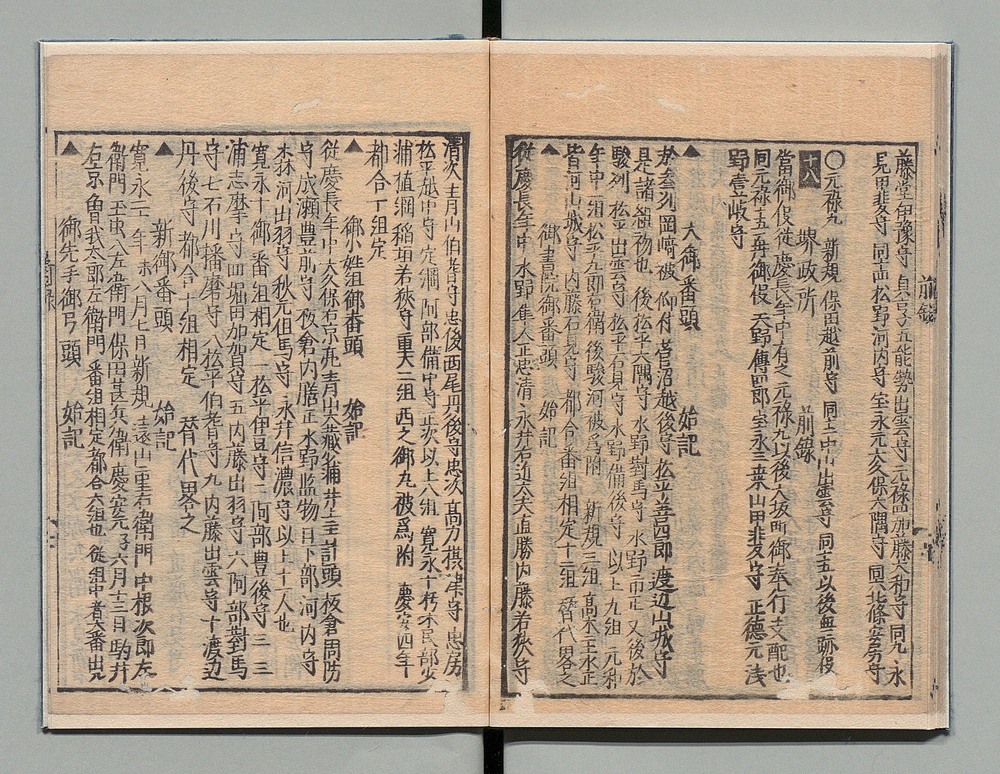 藤堂伊豫守 貞享五能勢出雲守 元禄四加藤大和守 同九 永
見甲斐守 同 松野河内守 宝永元大久保大隅守 同 北條安房守
十八 堺政所 前録
〇元禄九 新規 保田越前守 同 中山出雲守 同 以後無跡役
當御役従慶長年中有之元禄九以後大坂町御奉行支配也
同元禄十五再御役 天野傳四郎 宝永三 桒山甲斐守 正徳元浅
野壱岐守
▲ 大御番頭 始記
於参刕岡﨑被 仰付 菅沼越後守 松平善四郎 渡辺山城守
是諸組初也 後松平大隅守 水野對馬守 水野市正 又後於
駿刕 松平出雲守 松平石見守 水野備後守 以上九組 元和
年中一組松平九郎右衛 後駿河被為附 新規三組 髙木主水正
皆河山城守 内藤石見守 都合番組相定十二組 替代畧之
▲ 御書院御番頭 始記
従慶長年中水野隼人正忠清 永井右近大夫直勝 内藤若狭守
清次 青山伯耆守忠俊 西尾丹後守忠次 髙力摂津守忠房
松平越中守定綱 阿部備中守 ... 以上六組 寛永十朽木民部少
輔植綱 稲垣若狭守重大 二組 西之御丸被為附 慶安四年
都合十組定
▲ 御小姓組御番頭 始記
従慶長年中大久保右京亮 青山大蔵少輔 井上主計頭 板倉周防
守 成瀬豊前守 板倉内膳正 水野監物 日下部河内守
... 河出羽守 秋元但馬守 永井信濃守 以上十一人也
寛永十 御番組相定 一松平伊豆守 二阿部豊後守 三三
浦志摩守 四堀田加賀守 五内藤出羽守 六阿部對馬
守 七石川播磨守 八松平伯耆守 九内藤出雲守 十渡辺
丹後守 都合十組相定 替代畧之
▲ 新御番頭 始記
寛永二十年未八月七日新規 遠山二里右衛門 中根次郎左
衛門 ... 八左衛門 保田甚兵衛 慶安元子六月十三日駒井
右京 曽我太郎左衛門 番組相定都合六組也 従組中者大番出
▲ 御先手御弓頭 始記
前録